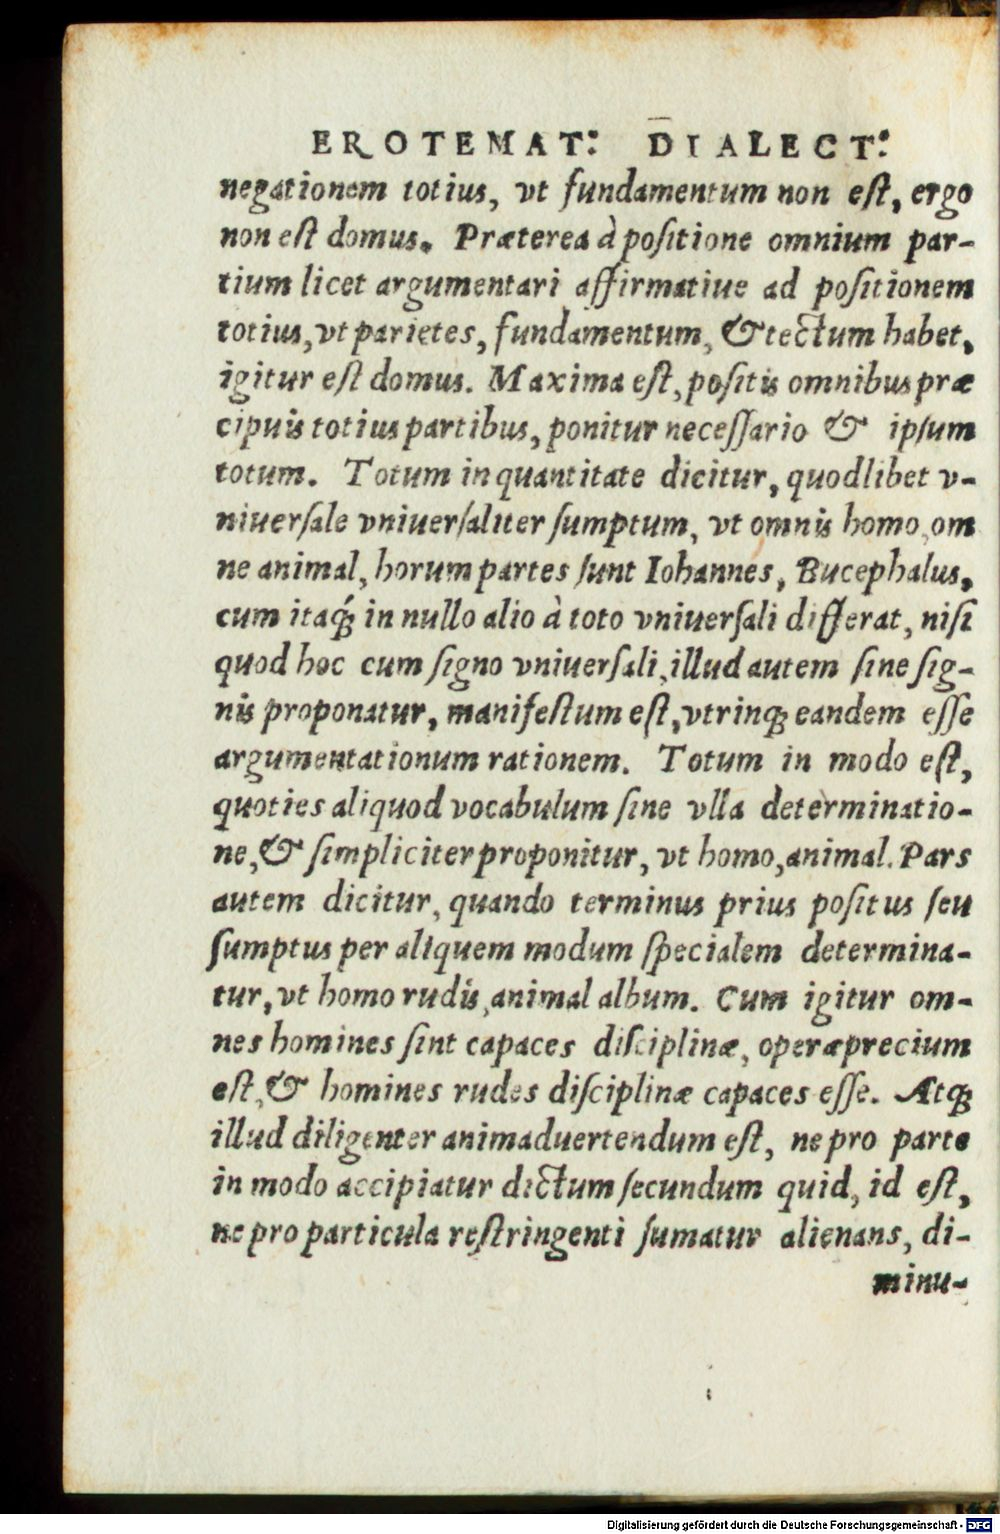 EROTEMAT: DIALECT:
negationem totius, vt fundamentum non eſt, ergo
non eſt domus. Præterea à poſitione omnium par-
tium licet argumentari affirmatiue ad poſitionem
totius, vt parietes, fundamentum, & tectum habet,
igitur eſt domus. Maxima eſt, poſitis omnibus præ
cipuis totius partibus, ponitur neceſſario & ipſum
totum. Totum in quantitate dicitur, quodlibet v-
niuerſale vniuerſaliter ſumptum, vt omnis homo, om
ne animal, horum partes ſunt Iohannes, Bucephalus,
cum itaq́; in nullo alio à toto vniuerſali differat, niſi
quod hoc cum ſigno vniuerſali, illud autem ſine ſig-
nis proponatur, manifeſtum eſt, vtrinq; eandem eſſe
argumentationum rationem. Totum in modo eſt,
quoties aliquod vocabulum ſine vlla determinatio-
ne, & ſimpliciter proponitur, vt homo, animal. Pars
autem dicitur, quando terminus prius poſitus ſeu
ſumptus per aliquem modum ſpecialem determina-
tur, vt homo rudis, animal album. Cum igitur om-
nes homines ſint capaces diſciplinæ, operæprecium
eſt, & homines rudes diſciplinæ capaces eſſe. Atq;
illud diligenter animaduertendum eſt, ne pro parte
in modo accipiatur dictum ſecundum quid, id eſt,
ne pro particula reſtringenti ſumatur alienans, di-
minu-
Digitalisierung gefördert durch die Deutsche Forschungsgemeinschaft - DFG